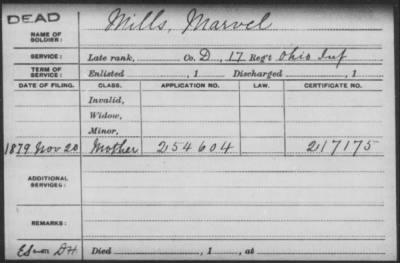 DEAD
NAME OF SOLDIER: Mills, Marvel
SERVICE: Late rank, Co. D, 17 Reg't Ohio Inf
TERM OF SERVICE: Enlisted , 1 Discharged , 1
DATE OF FILING. CLASS. APPLICATION NO. LAW. CERTIFICATE NO.
Invalid,
Widow,
Minor,
1879 Nov 20 Mother 254604 217175
ADDITIONAL SERVICES:
REMARKS:
Died , 1 , at